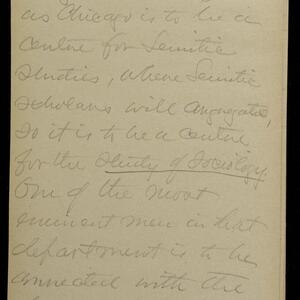 as Chicago is to be a
centre for Semitic
studies, where Semitic
scholars will congregate,
so it is to be a centre
for the study of Sociology.
One of the most
eminent men in that
department is to be
connected with the